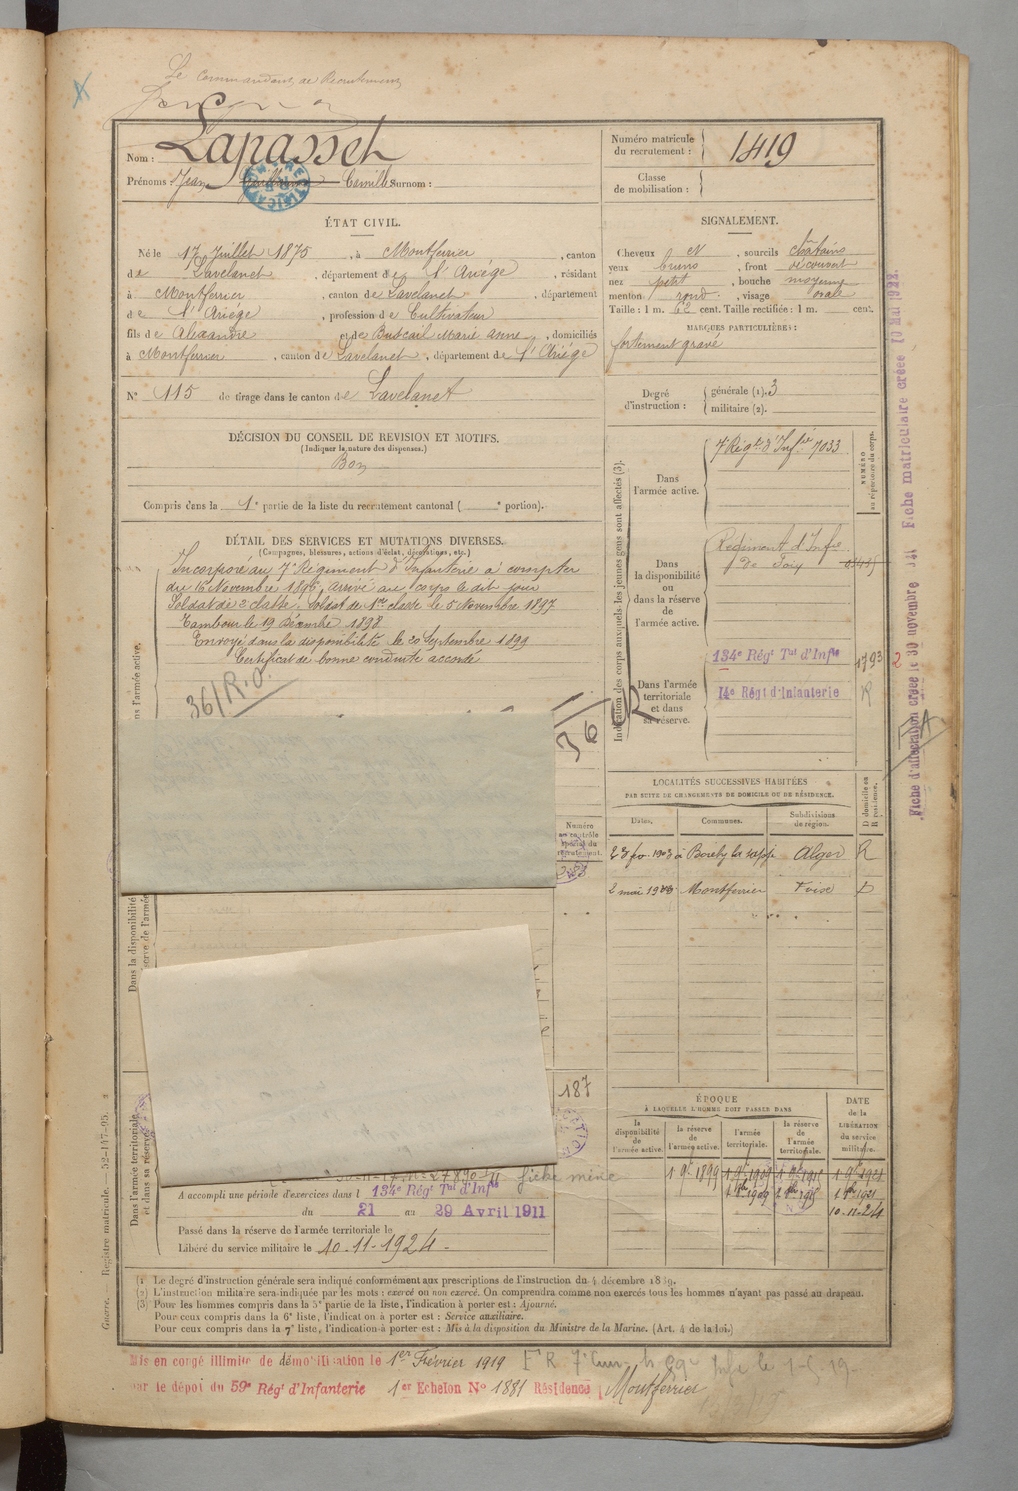 Le Commandant de Recrutement
Nom : Lapasset
Prénoms : Jean Guillaume Camille Surnom :
Numéro matricule du recrutement : 1419
Classe de mobilisation :
ÉTAT CIVIL.
Né le 17 Juillet 1875, à Montferrier, canton
de Lavelanet, département de l'Ariége, résidant
à Montferrier, canton de Lavelanet, département
de l'Ariége, profession de Cultivateur
fils de Alexandre et de Buscail Marie anne, domiciliés
à Montferrier, canton de Lavelanet, département de l'Ariége
N° 115 de tirage dans le canton de Lavelanet
SIGNALEMENT.
Cheveux et, sourcils châtains
yeux bruns, front découvert
nez petit, bouche moyenne
menton rond, visage ovale
Taille : 1 m. 62 cent. Taille rectifiée : 1 m. cent.
MARQUES PARTICULIÈRES :
fortement gravé
Degré d'instruction : générale (1). 3
militaire (2).
DÉCISION DU CONSEIL DE REVISION ET MOTIFS.
(Indiquer la nature des dispenses.)
Bon
Compris dans la 1e partie de la liste du recrutement cantonal ( e portion).
DÉTAIL DES SERVICES ET MUTATIONS DIVERSES.
(Campagnes, blessures, actions d'éclat, décorations, etc.)
Incorporé au 7e Régiment d'Infanterie à compter
du 16 Novembre 1896, arrivé au corps le dit jour
Soldat de 2e classe. Soldat de 1re classe le 5 Novembre 1897
Tambour le 19 Décembre 1898
Envoyé dans la disponibilité le 20 Septembre 1899
Certificat de bonne conduite accordé
36/R.O.
36
Indication des corps auxquels les jeunes gens sont affectés (3).
NUMÉRO au répertoire du corps.
Dans l'armée active.
7e Régt d'Infie 7033
Dans la disponibilité ou dans la réserve de l'armée active.
Régiment d'Infie
de Foix
Dans l'armée territoriale et dans sa réserve.
134e Régt Tal d'Infie 1793
14e Régt d'Infanterie R
LOCALITÉS SUCCESSIVES HABITÉES
PAR SUITE DE CHANGEMENTS DE DOMICILE OU DE RÉSIDENCE.
Dates. Communes. Subdivisions de région. D domicile ou R résidence.
Alger R
Montferrier Foix D
Numéro au contrôle spécial du recrutement.
187
ns l'armée active.
Dans la disponibilité
serve de l'armée
Dans l'armée territoriale
et dans sa réserve
ÉPOQUE
À LAQUELLE L'HOMME DOIT PASSER DANS
la disponibilité de l'armée active. la réserve de l'armée active. l'armée territoriale. la réserve de l'armée territoriale.
DATE de la LIBÉRATION du service militaire.
1 9bre 1899 1 9bre 1909
10-11-24
fiche mine
A accompli une période d'exercices dans l 134e Régt Tal d'Infie
du 21 au 29 Avril 1911
Passé dans la réserve de l'armée territoriale le
Libéré du service militaire le 10-11-1924
(1) Le degré d'instruction générale sera indiqué conformément aux prescriptions de l'instruction du 4 décembre 1889.
(2) L'instruction militaire sera indiquée par les mots : exercé ou non exercé. On comprendra comme non exercés tous les hommes n'ayant pas passé au drapeau.
(3) Pour les hommes compris dans la 5e partie de la liste, l'indication à porter est : Ajourné.
Pour ceux compris dans la 6e liste, l'indication à porter est : Service auxiliaire.
Pour ceux compris dans la 7e liste, l'indication à porter est : Mis à la disposition du Ministre de la Marine. (Art. 4 de la loi.)
Mis en congé illimité de démobilisation le 1er Février 1919
par le dépôt du 59e Régt d'Infanterie 1er Echelon N° 1881 Résidence Montferrier
Guerre. Registre matricule. — 52-147-95.
Fiche d'affectation créée le 30 novembre Fiche matriculaire créée 10 Mai 1922.